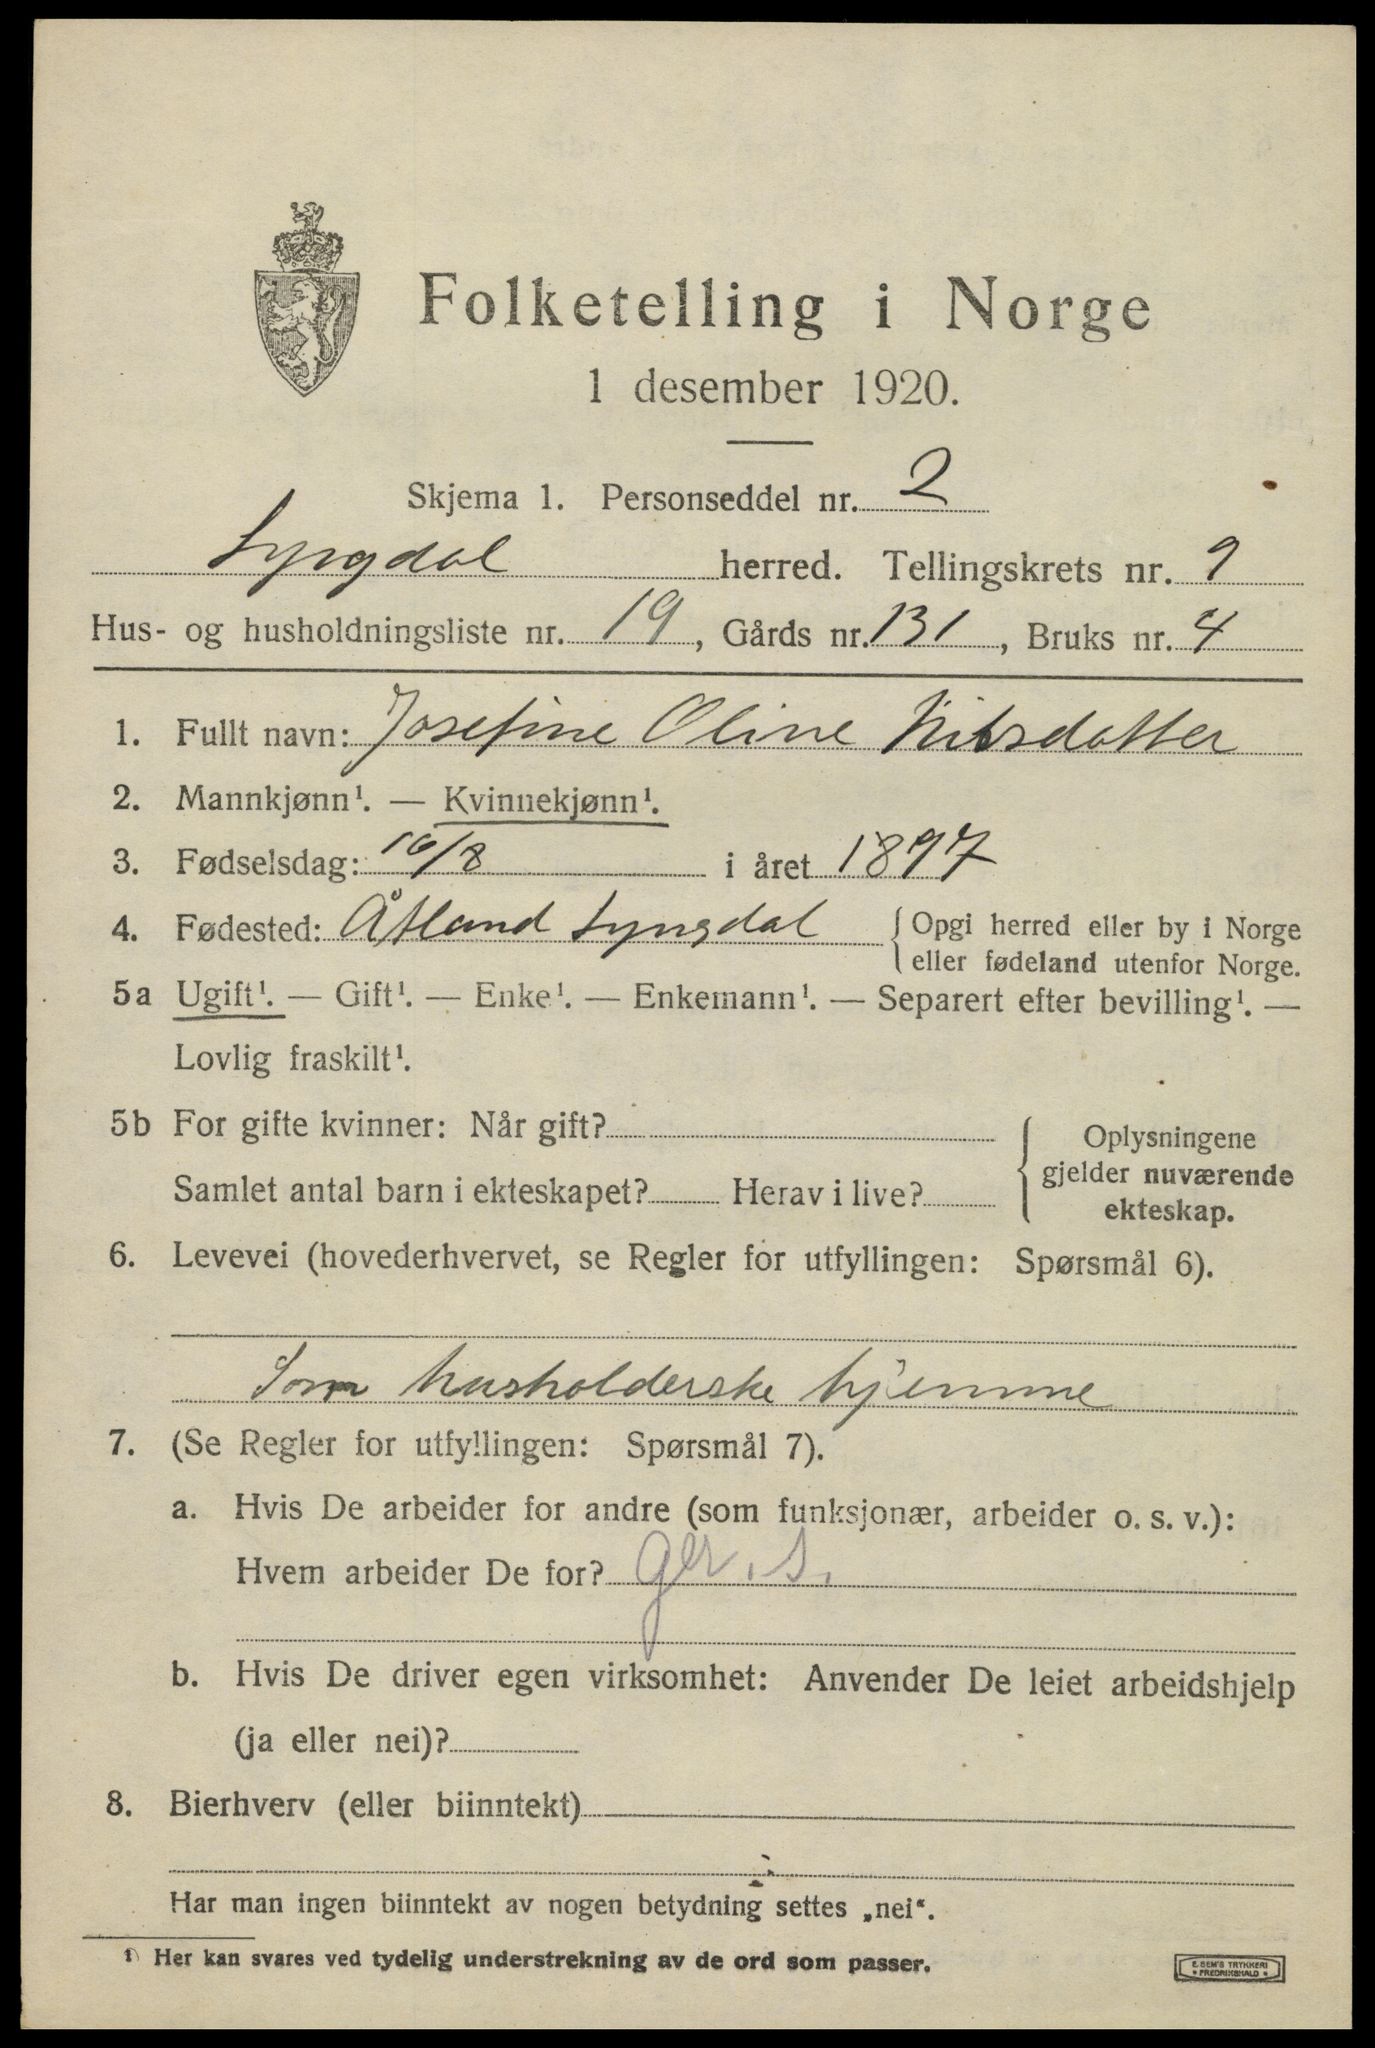 Folketelling i Norge
1 desember 1920.
Skjema 1. Personseddel nr. 2
Lyngdal herred. Tellingskrets nr. 9
Hus- og husholdningsliste nr. 19, Gårds nr. 131, Bruks nr. 4
1. Fullt navn: Josefine Oline Nilsdatter
2. Mannkjønn¹. — Kvinnekjønn¹.
3. Fødselsdag: 16/8 i året 1897
4. Fødested: Åtland Lyngdal { Opgi herred eller by i Norge
eller fødeland utenfor Norge.
5a Ugift¹. — Gift¹. — Enke¹. — Enkemann¹. — Separert efter bevilling¹. —
Lovlig fraskilt¹.
5b For gifte kvinner: Når gift?
Samlet antal barn i ekteskapet? Herav i live?
Oplysningene
gjelder nuværende
ekteskap.
6. Levevei (hovederhvervet, se Regler for utfyllingen: Spørsmål 6).
Som husholderske hjemme
7. (Se Regler for utfyllingen: Spørsmål 7).
a. Hvis De arbeider for andre (som funksjonær, arbeider o. s. v.):
Hvem arbeider De for?
b. Hvis De driver egen virksomhet: Anvender De leiet arbeidshjelp
(ja eller nei)?
8. Bierhverv (eller biinntekt)
Har man ingen biinntekt av nogen betydning settes „nei“.
¹) Her kan svares ved tydelig understrekning av de ord som passer.
E. SEM'S TRYKKERI
FREDRIKSHALD